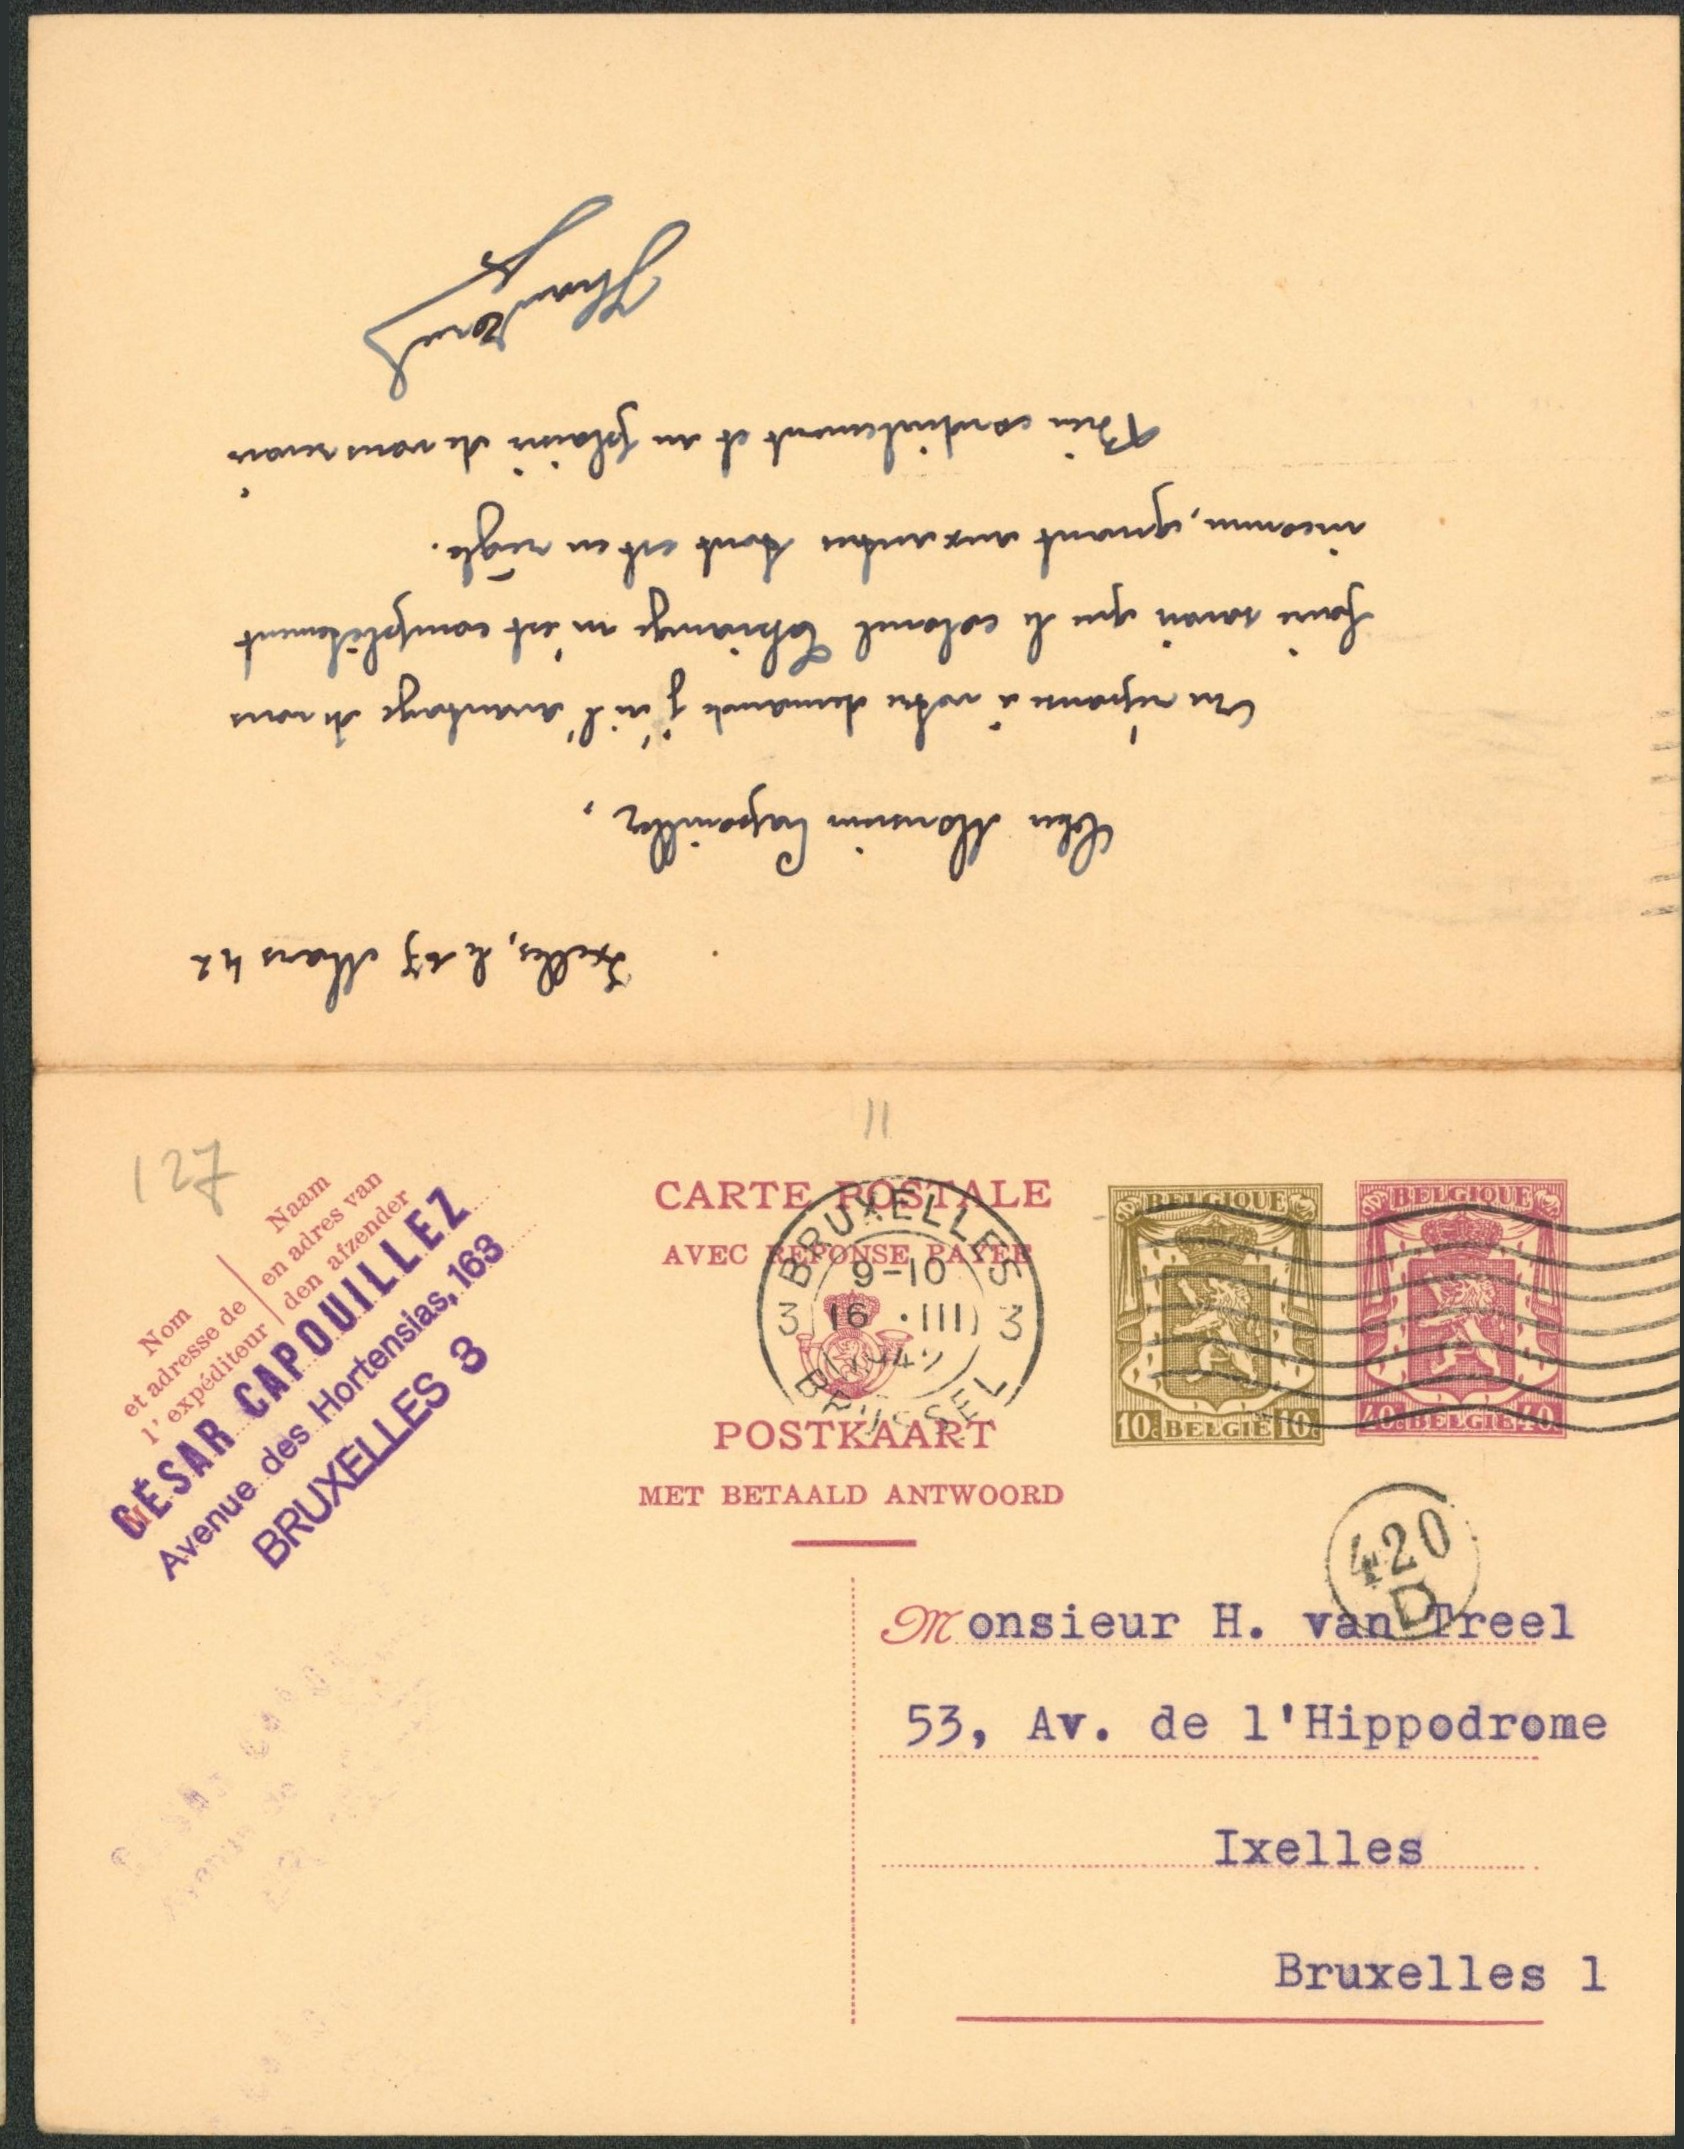 Ixelles, le 17 Mars 42
Cher Monsieur Capouillez,
En réponse à votre demande j'ai l'avantage de vous
faire savoir que le colonel m'est complètement
inconnu, quant aux autres tout est en règle.
Bien cordialement et au plaisir de vous revoir
127
11
Nom
et adresse de
l'expéditeur
Naam
en adres van
den afzender
CÉSAR CAPOUILLEZ
Avenue des Hortensias, 163
BRUXELLES 3
CARTE POSTALE
AVEC RÉPONSE PAYÉE
POSTKAART
MET BETAALD ANTWOORD
BRUXELLES
9-10
3 16 · III 3
BRUSSEL
BELGIQUE
10c BELGIE 10c
BELGIQUE
40c BELGIE 40c
420
D
Monsieur H. van Treel
53, Av. de l'Hippodrome
Ixelles
Bruxelles 1